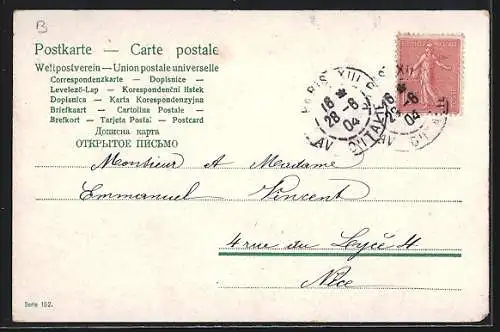 B
Postkarte — Carte postale
Weltpostverein — Union postale universelle
Correspondenzkarte — Dopisnice -
Levelező-Lap — Korespondenční lístek
Dopisnica — Karta Korespondenzyjna
Briefkaart — Cartolina Postale —
Brefkort — Tarjeta Postal — Postcard
Дописна карта
ОТКРЫТОЕ ПИСЬМО
PARIS XIII
18
28-6
04
AV. D'ITALIE
Monsieur et Madame
Emmanuel Vincent
4 rue du Lycée 4
Nice
Serie 182.